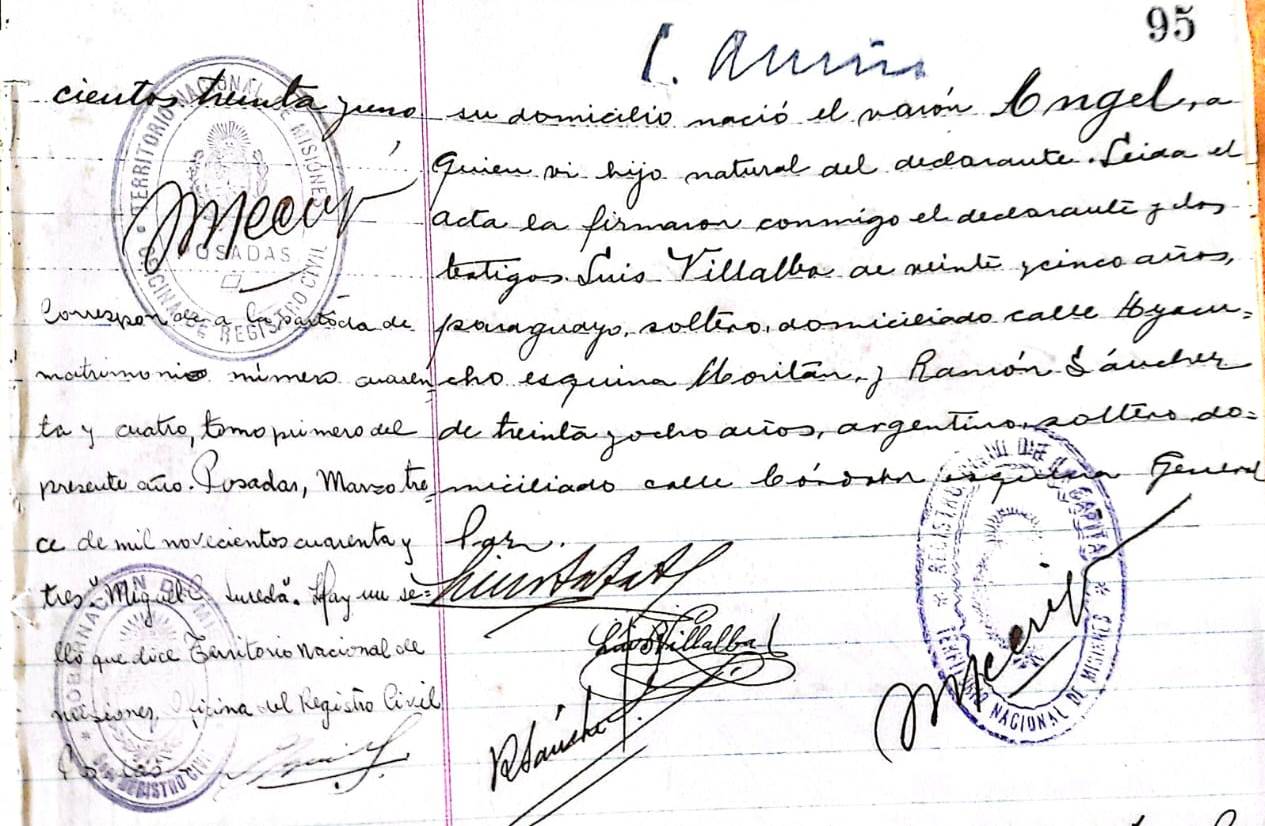 95
cientos treinta y uno
Corresponde a la partida de
matrimonio número cuaren
ta y cuatro, tomo primero del
presente año. Posadas, Marzo tre-
ce de mil novecientos cuarenta y
tres "Miguel C Sureda". Hay un se-
llo que dice Territorio Nacional de
misiones, Oficina del Registro Civil
su domicilio nació el varón Angel, a
quien vi hijo natural del declarante. Leida el
acta la firmaron conmigo el declarante y los
testigos Luis Villalba de veinte y cinco años,
paraguayo, soltero, domiciliado calle Ayacu=
cho esquina Moritán, y Ramón Sánchez
de treinta y ocho años, argentino, soltero, do=
miciliado calle Córdoba esquina General
Paz.
Luis B Villalba
R Sánchez
TERRITORIO NACIONAL DE MISIONES
POSADAS
OFICINA DE REGISTRO CIVIL
GOBERNACION DE MI
REGISTRO CIVI
REGISTRO CAPITAL
NACIONAL DE MISIONES